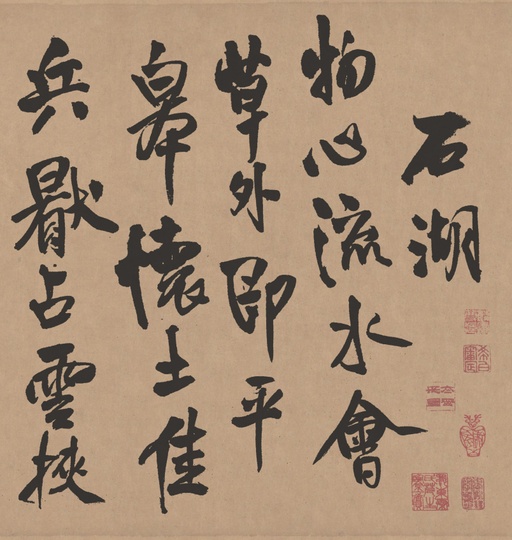 石湖
物心流水會
草外即平
皋懷土佳
兵厭占雲挾